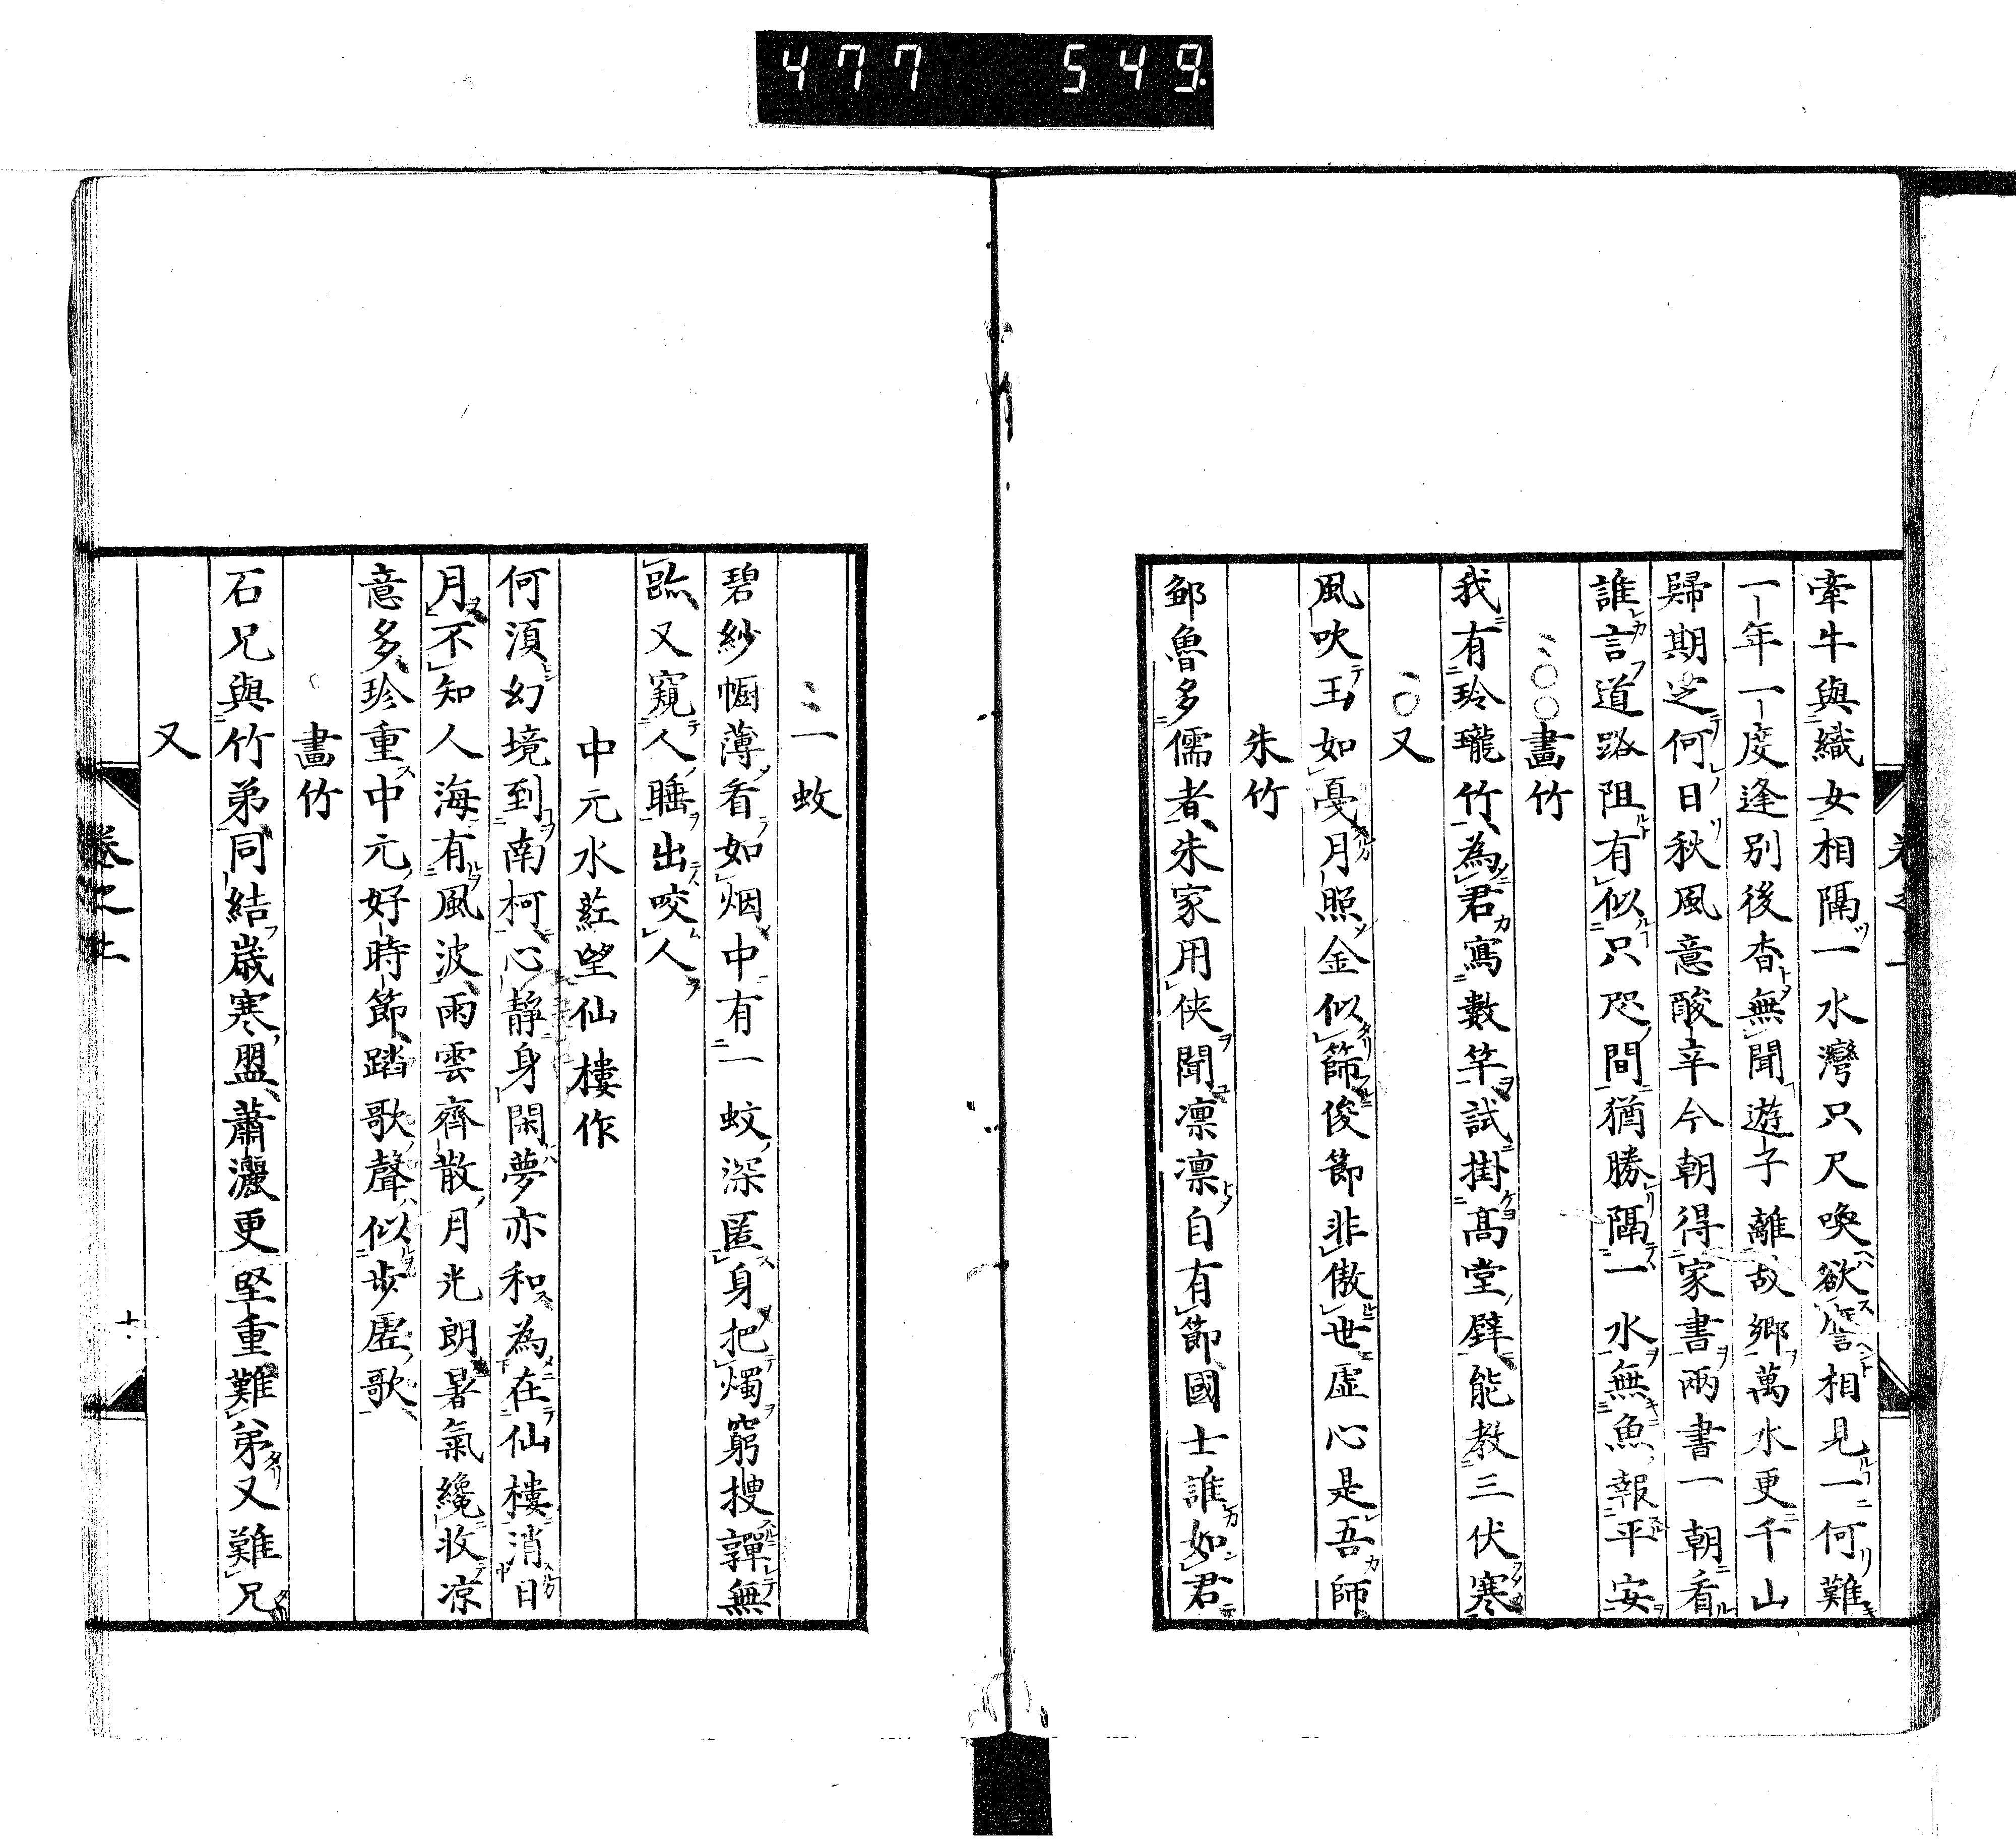 477 549
牽牛與織女相隔一水灣只尺喚欲譍相見一何難
一年一度逢別後杳無聞遊子離故鄉萬水更千山
歸期定何日秋風意酸辛今朝得家書兩書一朝看
誰言道路阻有似只咫間猶勝隔一水無魚報平安
畫竹
我有玲瓏竹為君寫數竿試掛高堂壁能教三伏寒
又
風吹玉如戛月照金似篩俊節非傲世虛心是吾師
朱竹
鄒魯多儒者朱家用俠聞凛凛自有節國士誰如君
一蚊
碧紗幮薄看如烟中有一蚊深匿身把燭窮搜嚲無
臨又窺人睡出咬人
中元水莊望仙樓作
何須幻境到南柯心靜身閑夢亦和為在仙樓消日
月不知人海有風波雨雲齊散月光朗暑氣纔收凉
意多珍重中元好時節踏歌聲似步虛歌
畫竹
石兄與竹弟同結歲寒盟蕭灑更堅重難弟又難兄
又
卷之上
十